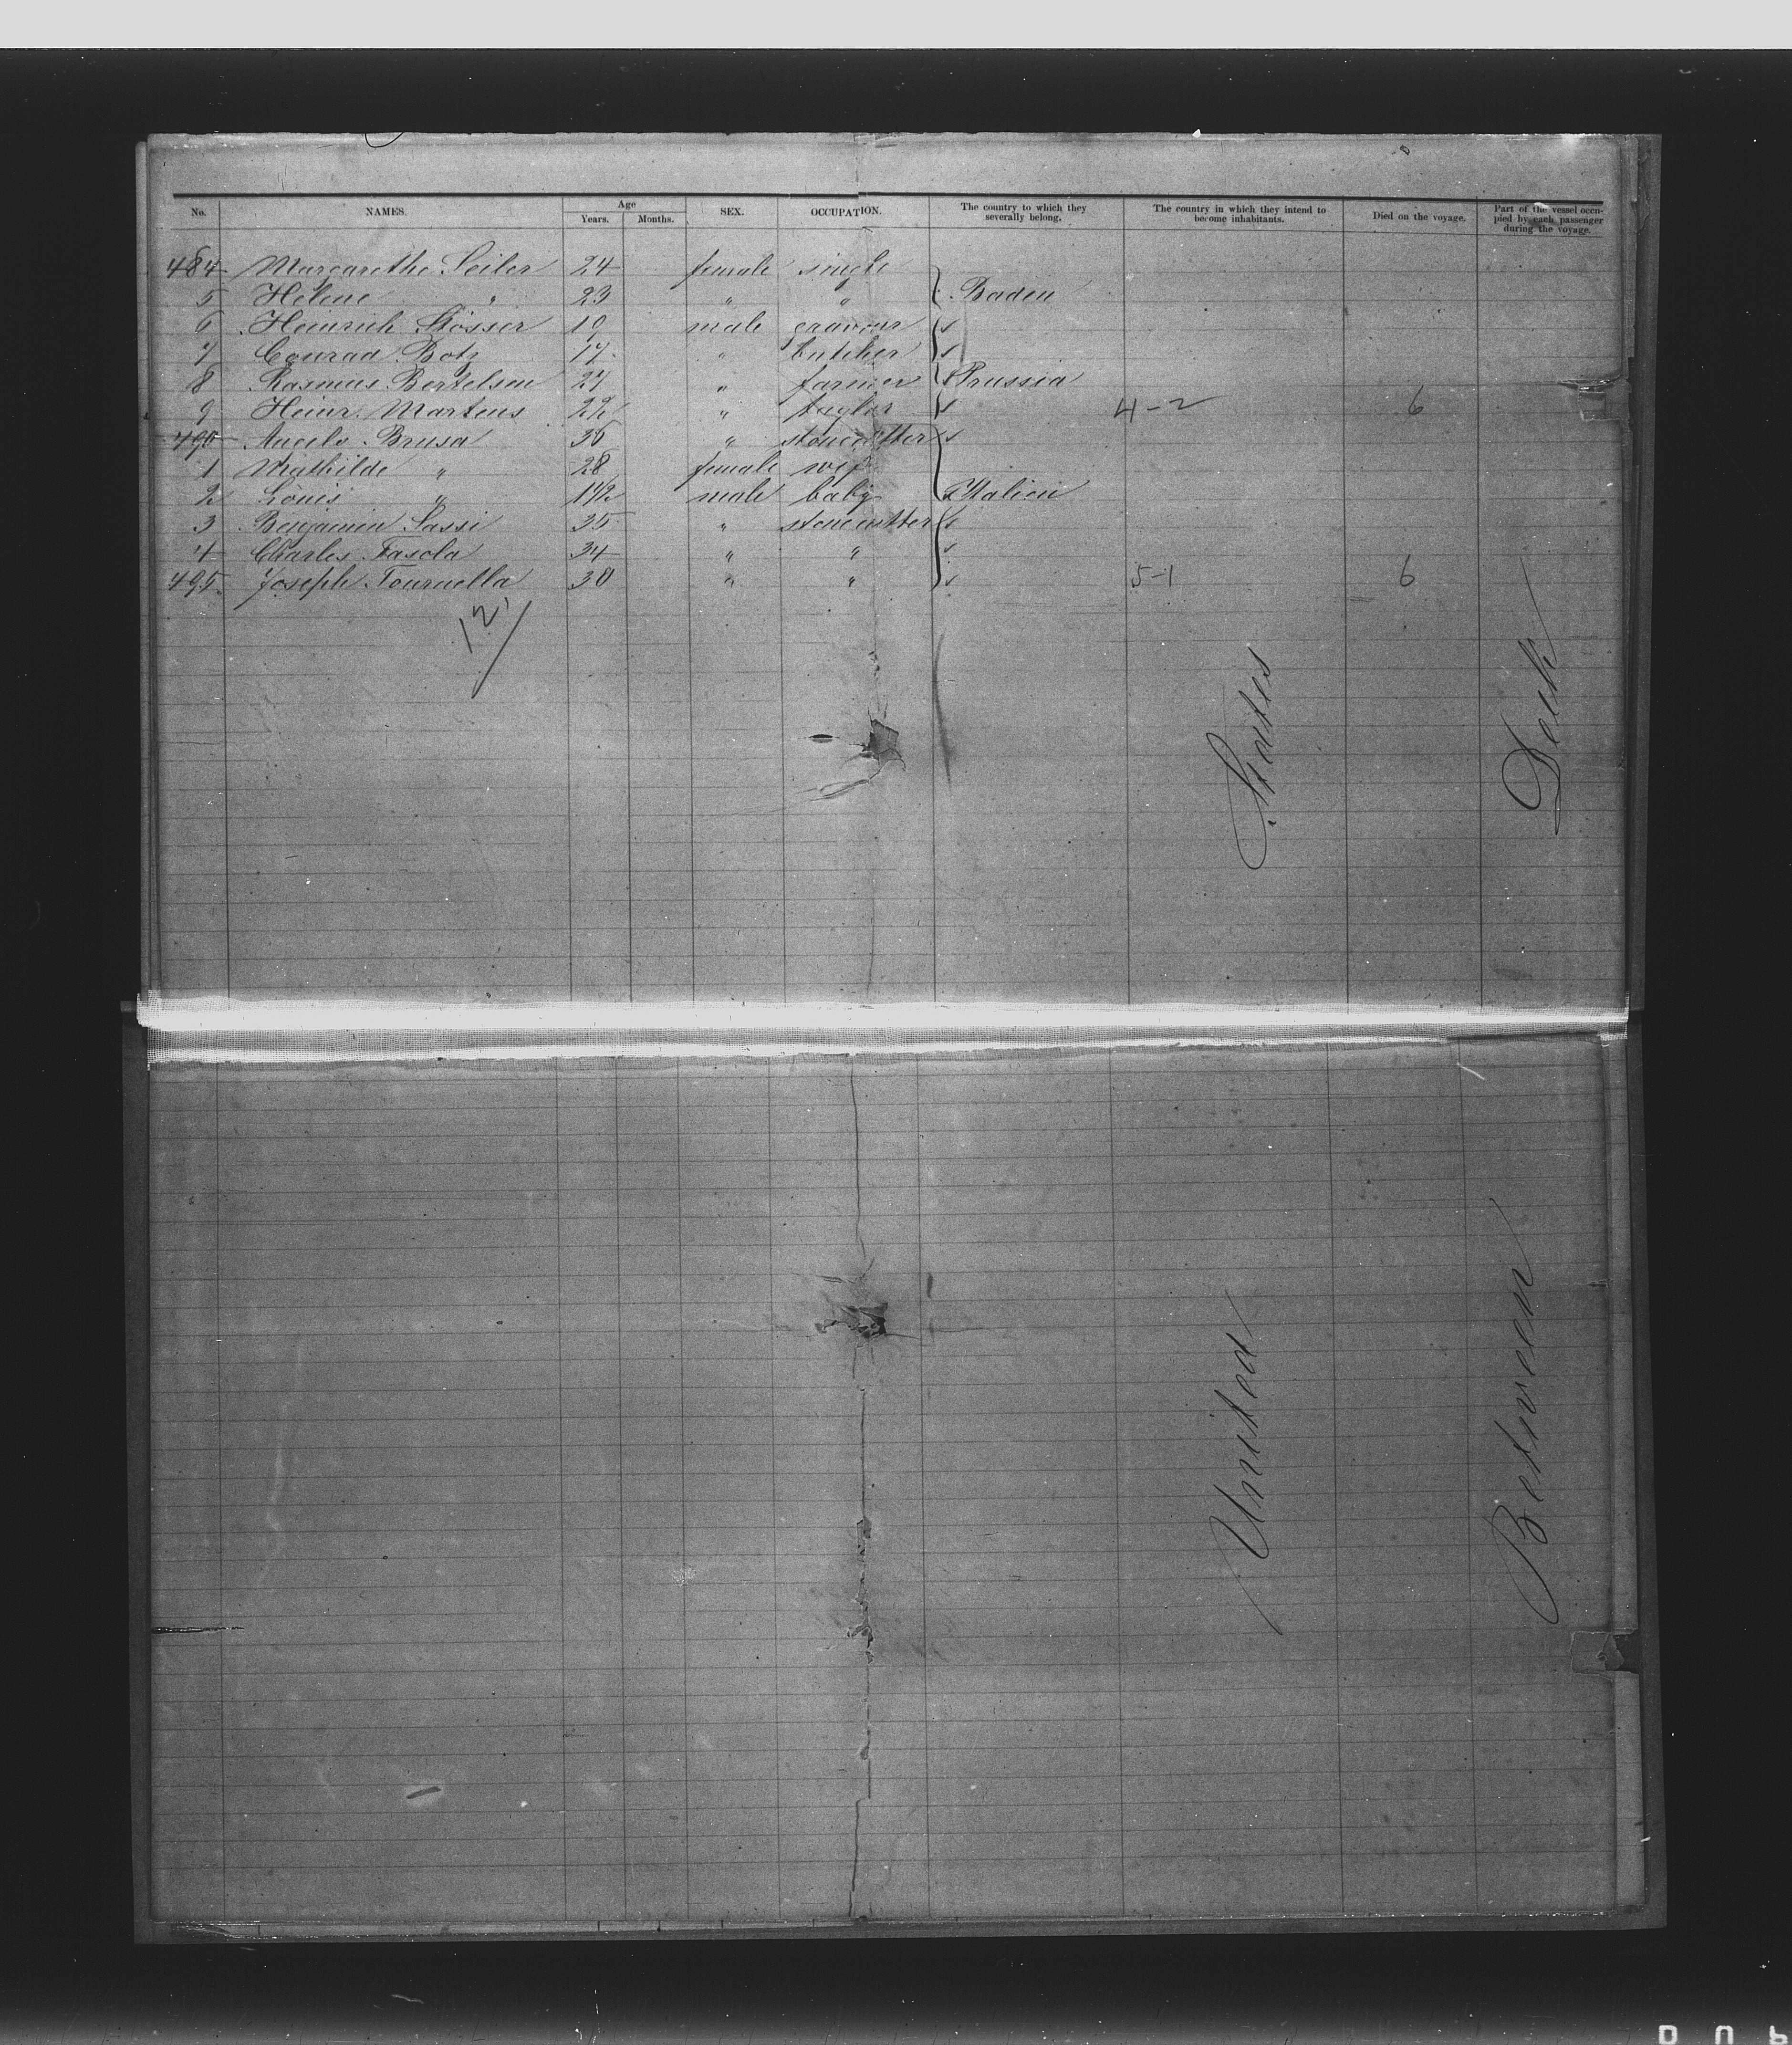 No. NAMES. Age Years. Months. SEX. OCCUPATION. The country to which they severally belong. The country in which they intend to become inhabitants. Died on the voyage. Part of the vessel occupied by each passenger during the voyage.
484 Margarethe Seiler 24 female single
5 Helene " 23 " " Baden
6 Heinrich 19 male graveur
7 Conrad Botz 17 " butcher
8 Rasmus Bertelsen 27 " farmer Prussia
9 Heinr. Martens 22 " taylor 4-2 6
490 Angelo Brusa 36 " stonecutter
1 Mathilde " 28 female wife
2 Louis " 1 1/2 male baby Italien
3 Benjamin Sassi 35 " stonecutter
4 Charles Fasola 34 " "
495. Joseph Tournella 30 " " 5-1 6
12
United States
Between Deck